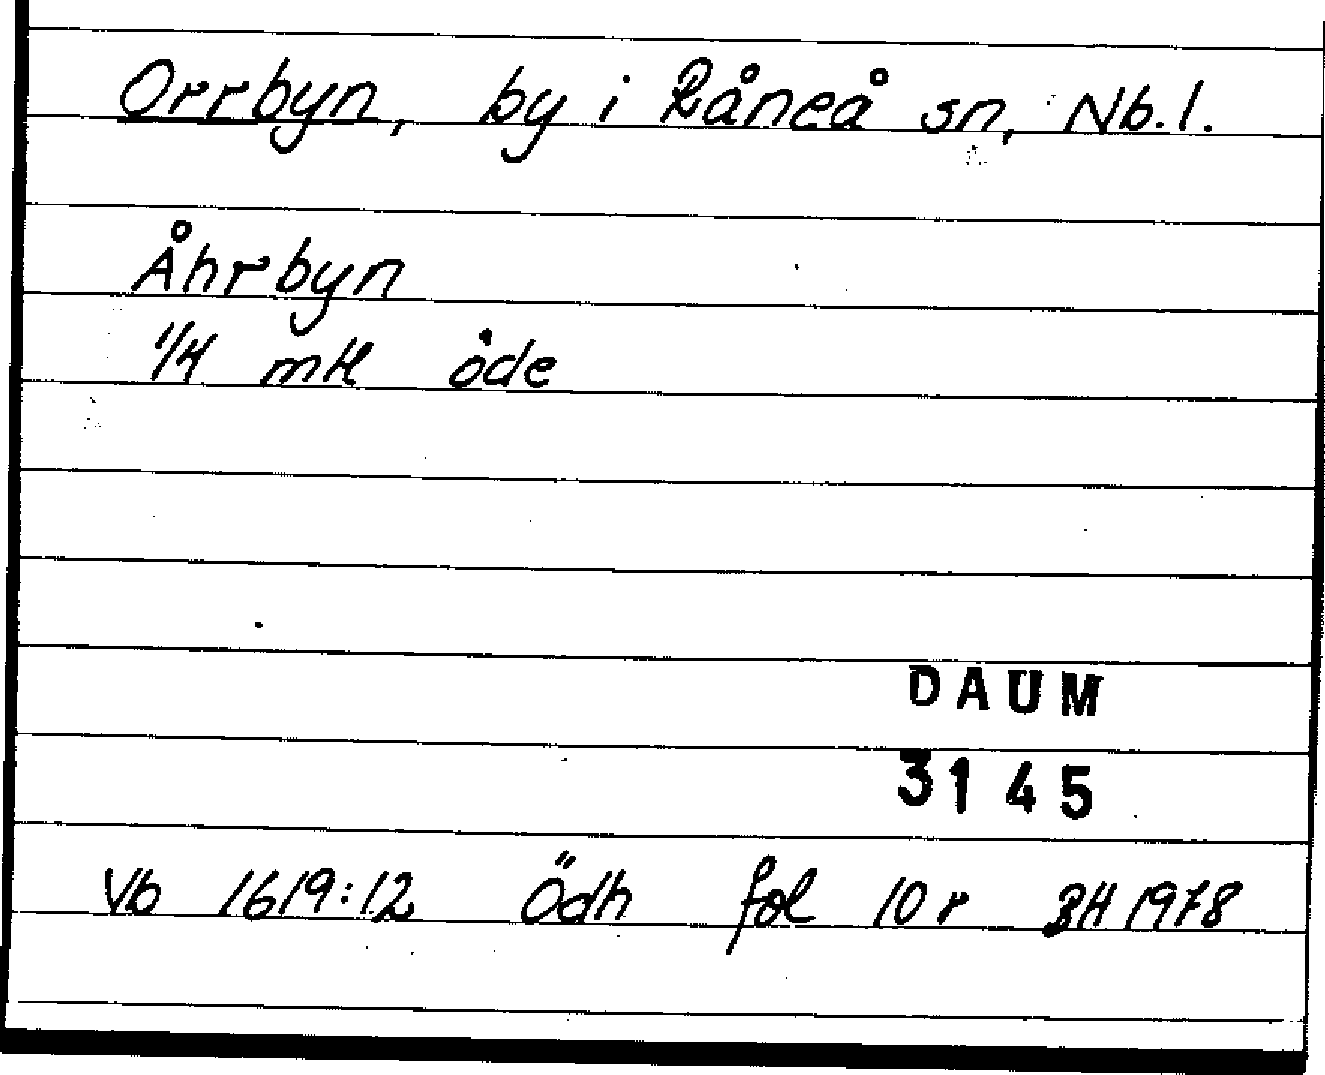 Orrbyn, by i Råneå sn, Nb.l.
Åhrbyn
1/4 mtl öde
DAUM
3145
Vb 1619:12 Ödh fol 10 r BH 1978